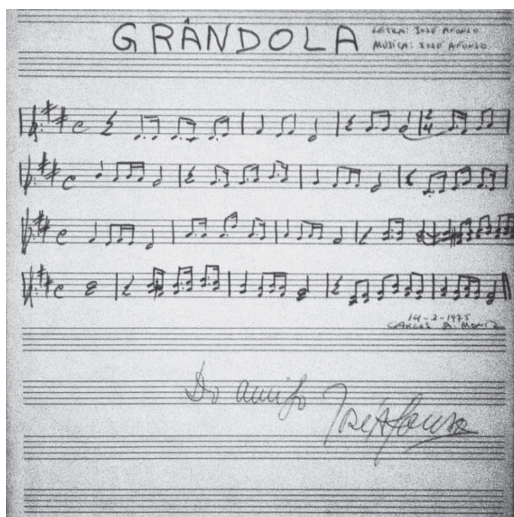 GRÂNDOLA
LETRA: JOSÉ AFONSO
MÚSICA: JOSÉ AFONSO
14-2-1975
CARLOS A. MONIZ
Do amigo José Afonso